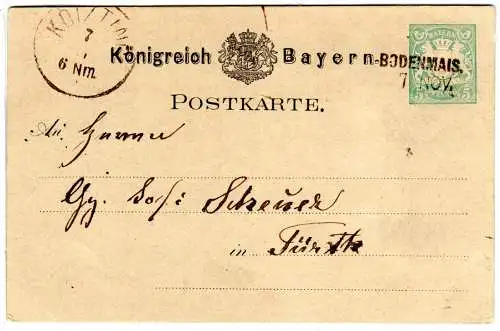 KÖTZTING
7
6 Nm.
Königreich Bayern
BODENMAIS.
7 NOV.
BAYERN
5 5
POSTKARTE.
An Herrn
Scheuer
in Fürth